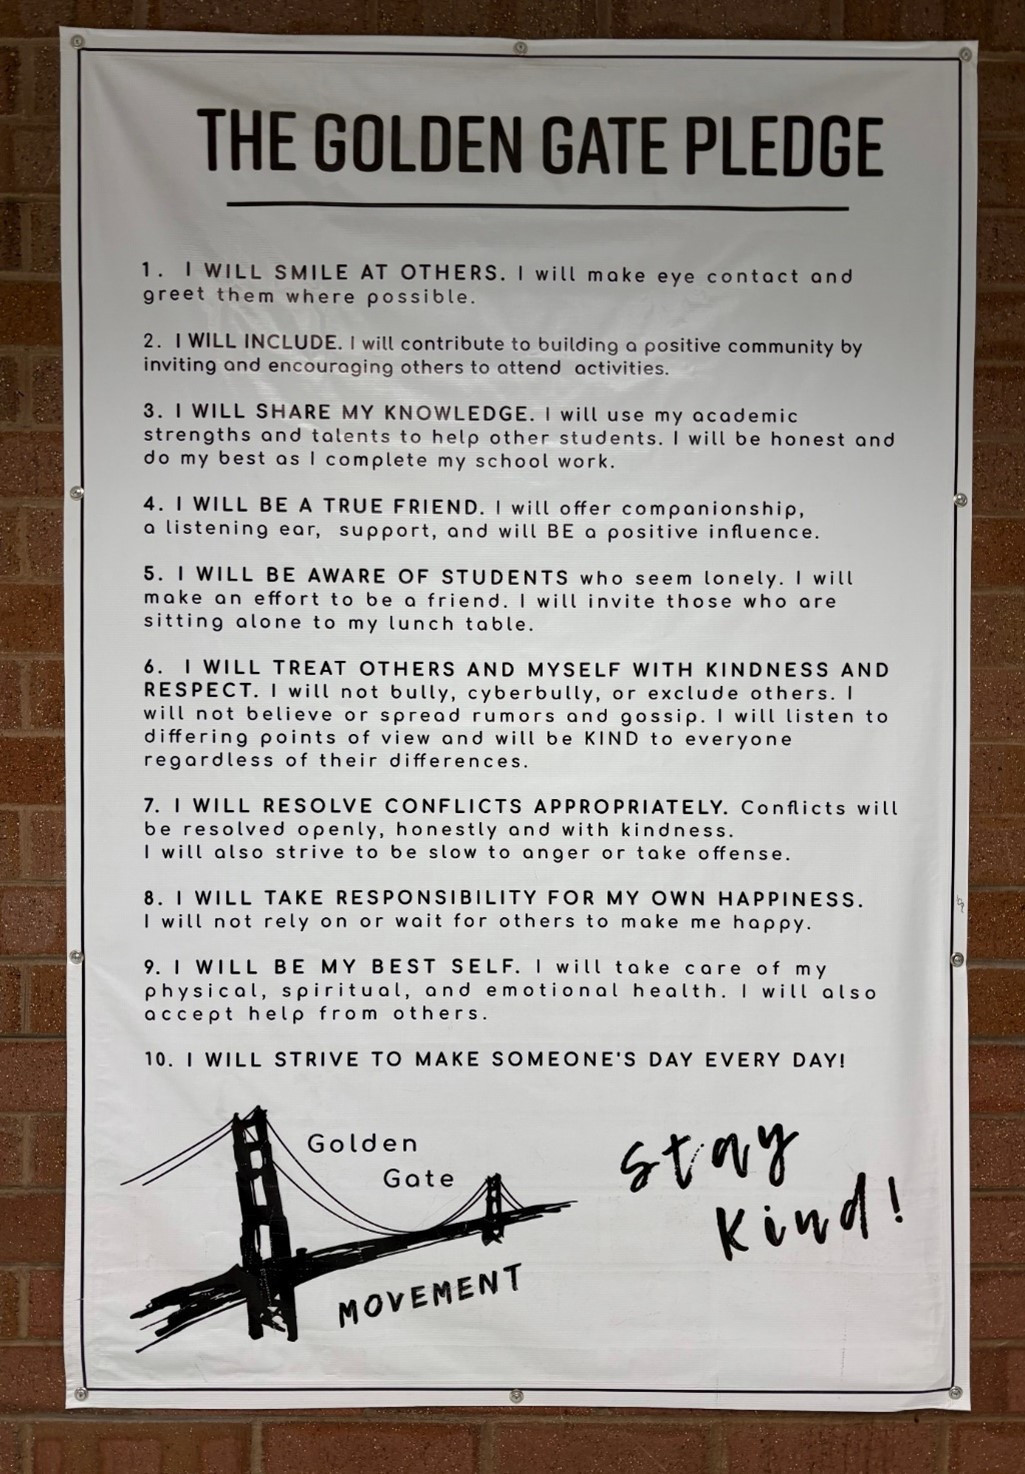 THE GOLDEN GATE PLEDGE
1. I WILL SMILE AT OTHERS. I will make eye contact and
greet them where possible.
2. I WILL INCLUDE. I will contribute to building a positive community by
inviting and encouraging others to attend activities.
3. I WILL SHARE MY KNOWLEDGE. I will use my academic
strengths and talents to help other students. I will be honest and
do my best as I complete my school work.
4. I WILL BE A TRUE FRIEND. I will offer companionship,
a listening ear, support, and will BE a positive influence.
5. I WILL BE AWARE OF STUDENTS who seem lonely. I will
make an effort to be a friend. I will invite those who are
sitting alone to my lunch table.
6. I WILL TREAT OTHERS AND MYSELF WITH KINDNESS AND
RESPECT. I will not bully, cyberbully, or exclude others. I
will not believe or spread rumors and gossip. I will listen to
differing points of view and will be KIND to everyone
regardless of their differences.
7. I WILL RESOLVE CONFLICTS APPROPRIATELY. Conflicts will
be resolved openly, honestly and with kindness.
I will also strive to be slow to anger or take offense.
8. I WILL TAKE RESPONSIBILITY FOR MY OWN HAPPINESS.
I will not rely on or wait for others to make me happy.
9. I WILL BE MY BEST SELF. I will take care of my
physical, spiritual, and emotional health. I will also
accept help from others.
10. I WILL STRIVE TO MAKE SOMEONE'S DAY EVERY DAY!
Golden
Gate
MOVEMENT
Stay
Kind!